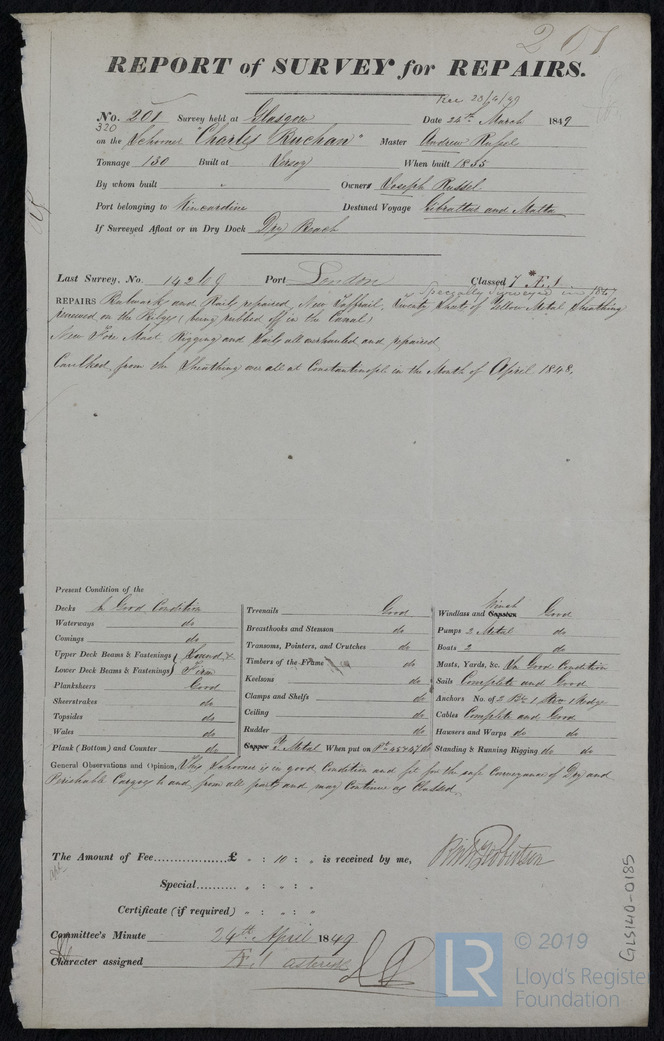 201
REPORT of SURVEY for REPAIRS.
Rec 23/4/49
No. 201 Survey held at Glasgow Date 24th March 1849
320
on the Schooner "Charles Buchan" Master Andrew Russel
Tonnage 130 Built at When built 1835
By whom built " Owners Joseph Russel
Port belonging to Kincardine Destined Voyage Gibraltar and Malta
If Surveyed Afloat or in Dry Dock Dry Beach
Last Survey, No. 14269 Port London Classed Æ 1
Specially surveyed in 1847
REPAIRS Bulwarks and Rails repaired, New Taffrail, Twenty Sheets of Yellow Metal Sheathing
renewed on the Bilges (being rubbed off in the Canal)
New Fore Mast, Rigging and Sails all overhauled and repaired
Caulked from the Sheathing over all at Constantinople in the Month of April 1848.
Present Condition of the
Decks In Good Condition
Waterways do
Comings do
Upper Deck Beams & Fastenings } Sound, &
Lower Deck Beams & Fastenings } Firm
Planksheers Good
Sheerstrakes do
Topsides do
Wales do
Plank (Bottom) and Counter do
Treenails Good
Breasthooks and Stemson do
Transoms, Pointers, and Crutches do
Timbers of the Frame do
Keelsons do
Clamps and Shelfs do
Ceiling do
Rudder do
Copper Y. Metal When put on do
Winch
Windlass and Capstan Good
Pumps 2 Metal do
Boats 2 do
Masts, Yards, &c. In Good Condition
Sails Complete and Good
Anchors No. of 2 Br 1 Str 1 Kedge
Cables Complete and Good
Hawsers and Warps do do
Standing & Running Rigging do do
General Observations and Opinion, This Schooner is in good Condition and fit for the safe Conveyance of Dry and
Perishable Cargoes to and from all ports and may Continue as Classed.
The Amount of Fee..................£ " : 10 : " is received by me,
Special.......... " : " : "
Certificate (if required) " : " : "
Committee's Minute 24th April 1849
Character assigned Æ 1 asterisk
GLS140-0185
LR
© 2019
Lloyd's Register
Foundation